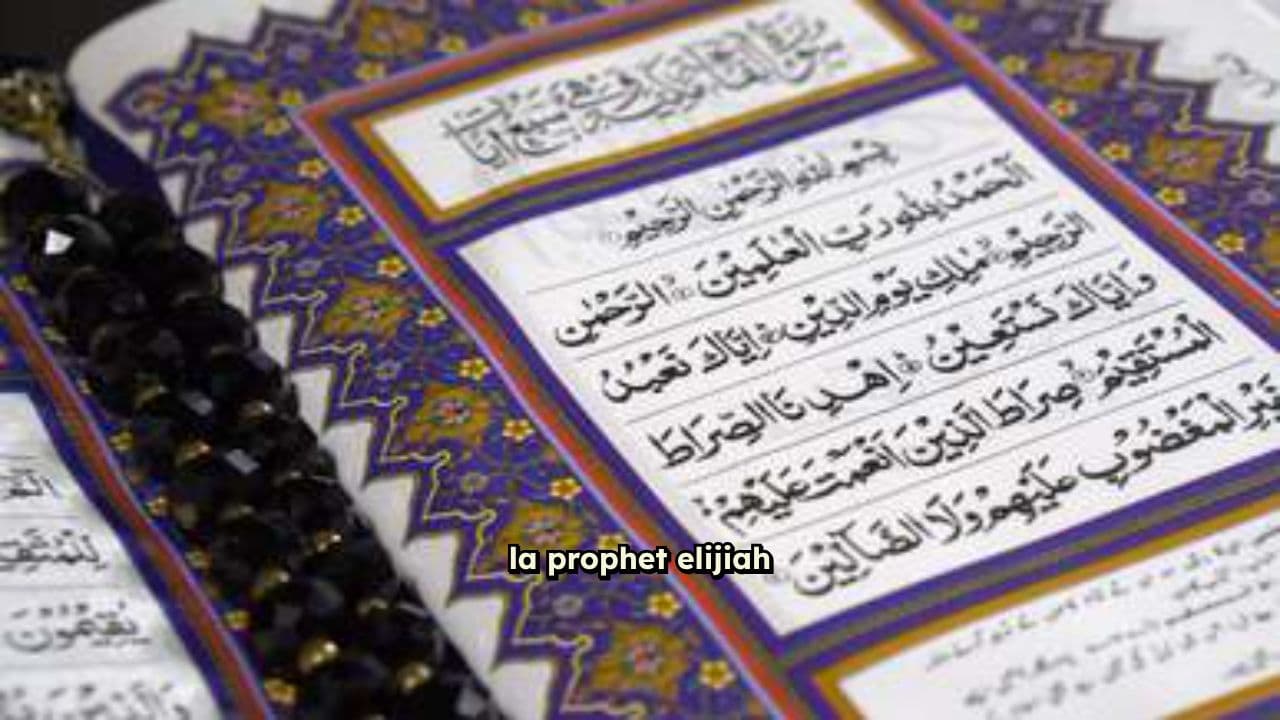 سُوْرَةُ الْفَاتِحَةِ مَكِّيَّةٌ وَّهِيَ سَبْعُ اٰيَاتٍ
بِسْمِ اللهِ الرَّحْمٰنِ الرَّحِيْمِ
اَلْحَمْدُ لِلّٰهِ رَبِّ الْعٰلَمِيْنَ الرَّحْمٰنِ
الرَّحِيْمِ مٰلِكِ يَوْمِ الدِّيْنِ اِيَّاكَ نَعْبُدُ
وَاِيَّاكَ نَسْتَعِيْنُ اِهْدِنَا الصِّرَاطَ
الْمُسْتَقِيْمَ صِرَاطَ الَّذِيْنَ اَنْعَمْتَ عَلَيْهِمْ
غَيْرِ الْمَغْضُوْبِ عَلَيْهِمْ وَلَا الضَّآلِّيْنَ
لِلْمُتَّقِيْنَ
يُقِيْمُوْنَ
وَالَّذِيْنَ
la prophet elijiah